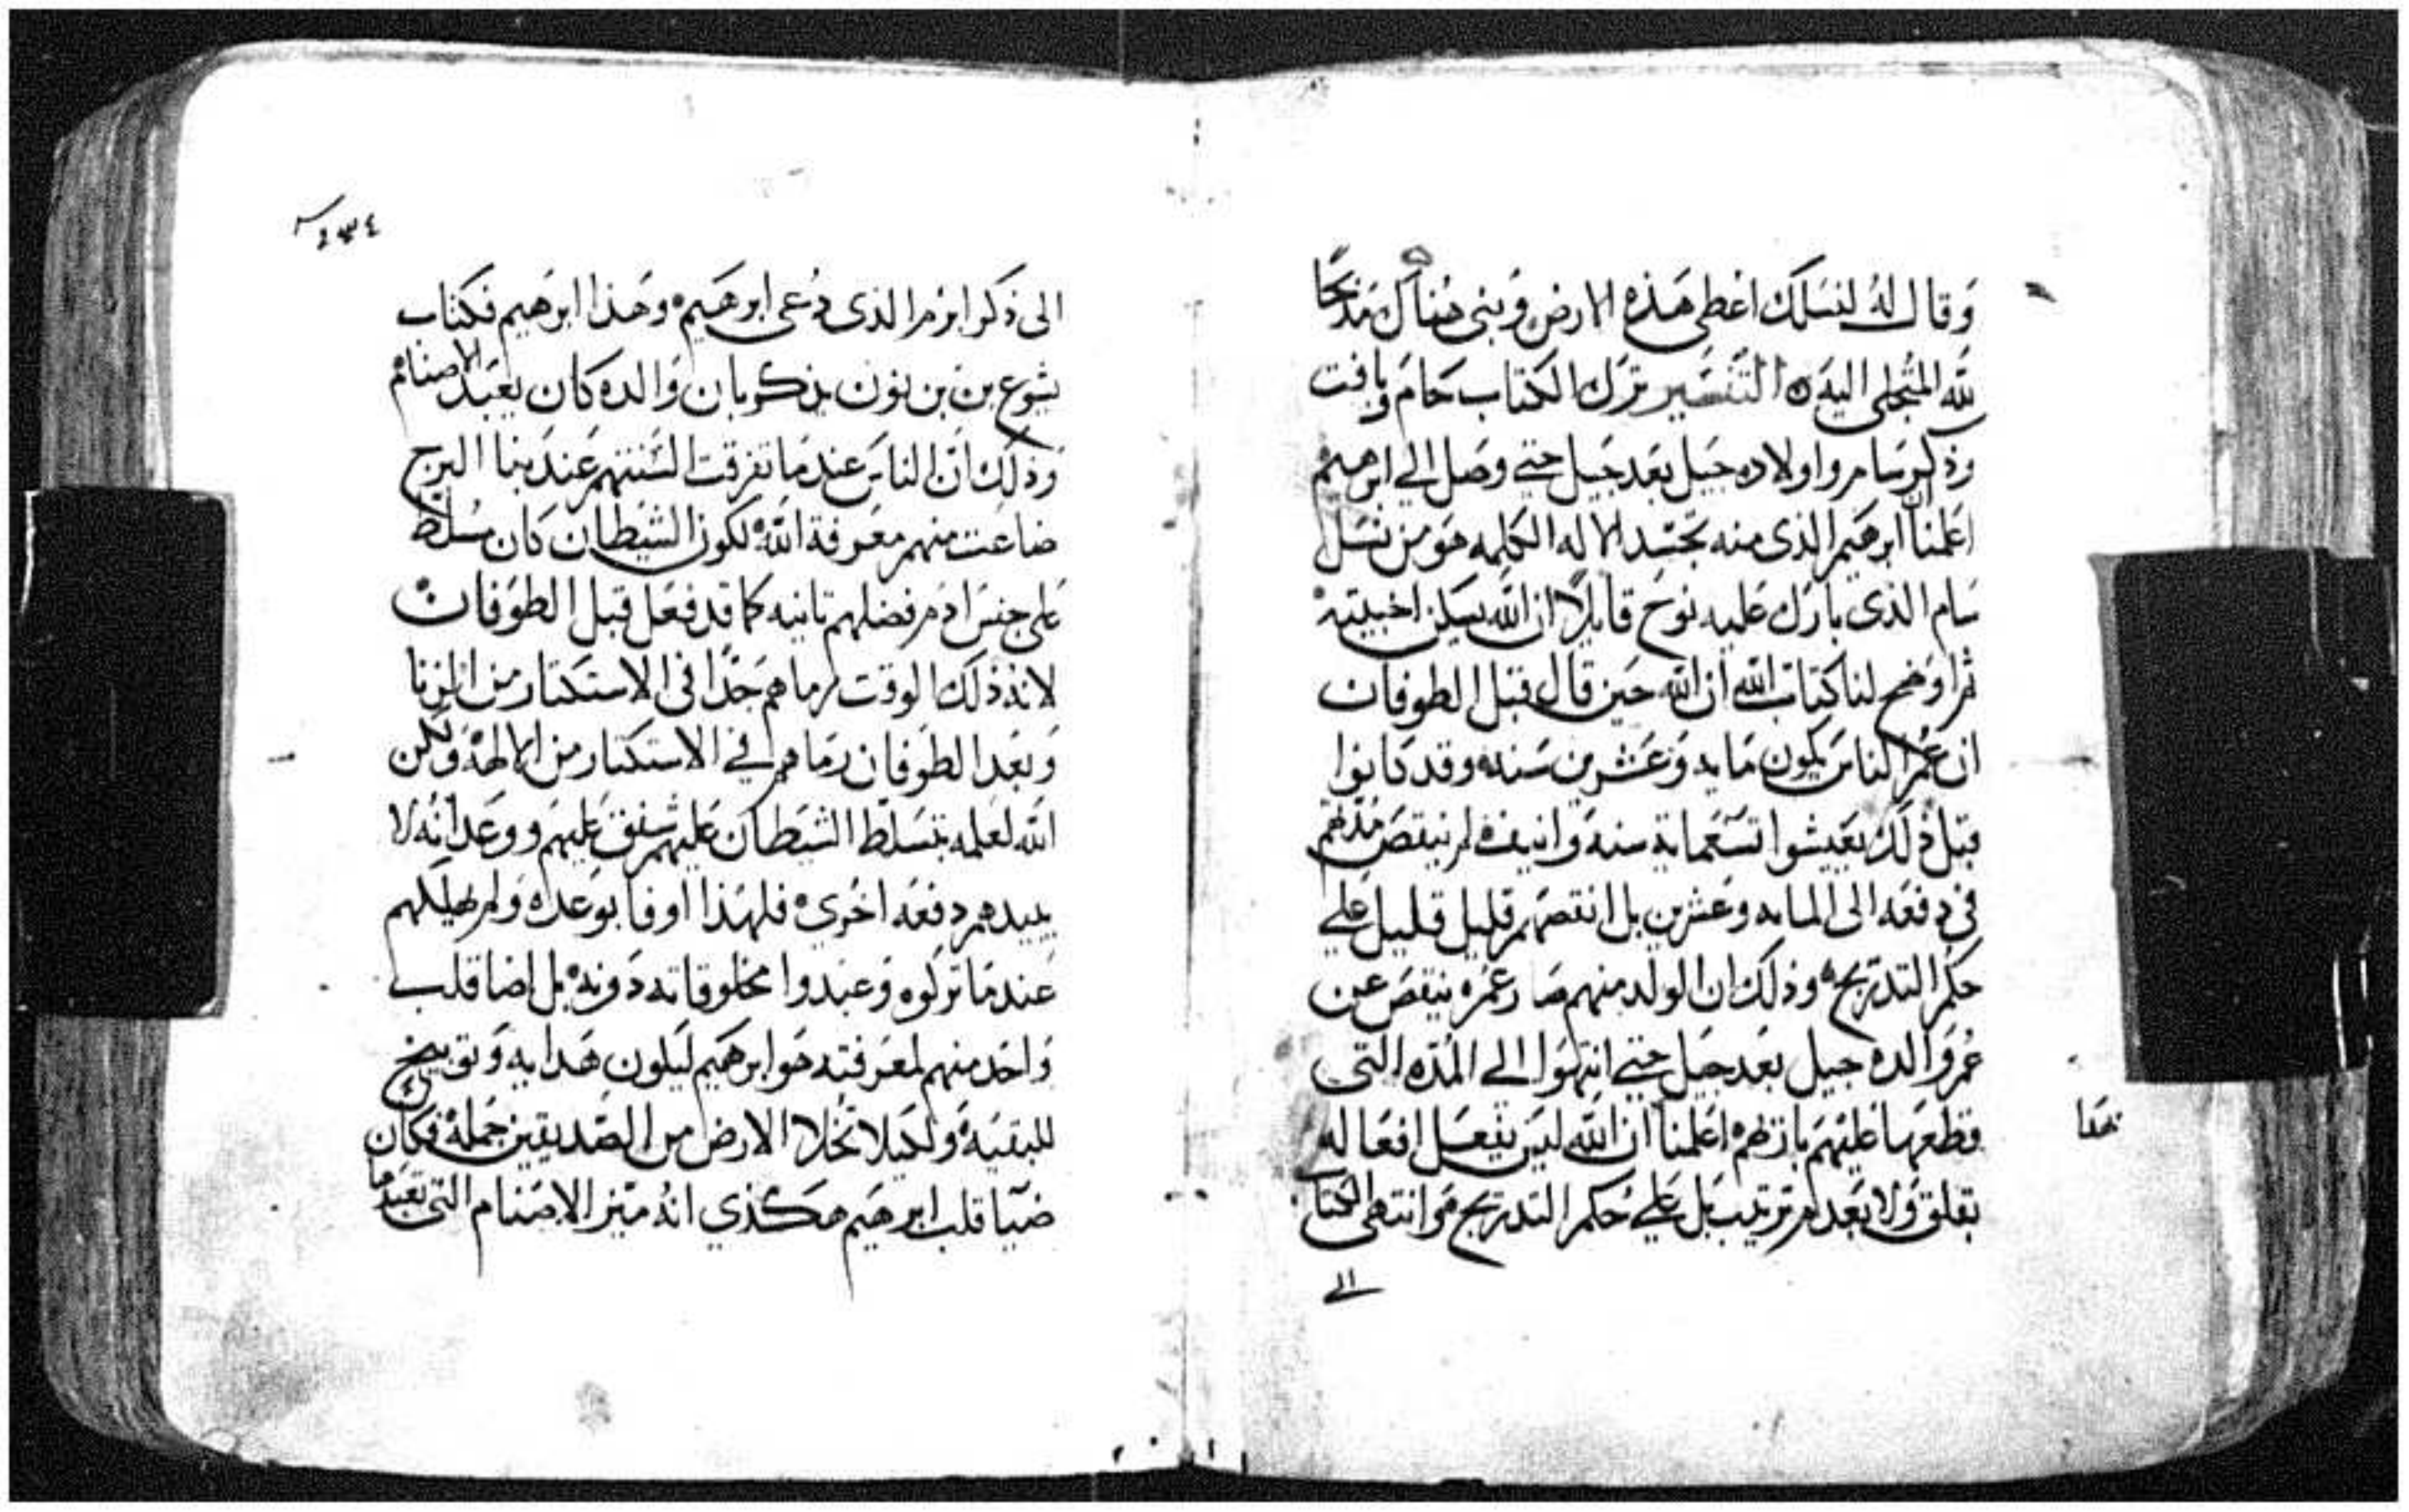 وقال له لنسلك اعطى هذه الارض وبنى هناك مذبحا
لله المتجلى اليه التفسير ترك الكتاب حام ويافت
وذكر سام واولاده جيل بعد جيل حتى وصل الى ابرهيم
اعلمنا ان ابرهيم الذى منه تجسد الاله الكلمه هو من نسل
سام الذى بارك عليه نوح قايلا ان الله يسكن اخبيته
ثم اوضح لنا كتاب الله ان الله حين قال قبل الطوفان
ان عمر الناس يكون مايه وعشرين سنه وقد كانوا
قبل ذلك يعيشوا تسعماية سنه وانيف لم ينقص مدتهم
فى دفعه الى المايه وعشرين بل انقصهم قليل قليل على
حكم التدريج وذلك ان الولد منهم صار عمره ينقص عن
عمر والده جيل بعد جيل حتى انتهوا الى المده التى
قطعها عليهم باريهم اعلمنا ان الله ليس يفعل افعاله
بقلق ولا بعدم ترتيب بل على حكم التدريج هو انتهى الكتاب
الى
هدا
٢٣٤
الى ذكر ابرم الذى دعى ابرهيم وهذا ابرهيم فكتاب
يشوع بن نون يذكر بان والده كان يعبد الاصنام
وذلك ان الناس عندما تفرقت السنتهم عند بنا البرج
ضاعت منهم معرفة الله لكون الشيطان كان مسلط
على جنس ادم فضلهم تانيه كما قد فعل قبل الطوفان
لانه ذلك الوقت رماهم جدا فى الاستكتار من الزنا
وبعد الطوفان رماهم في الاستكتار من الالهة ولكن
الله لعلمه بتسلط الشيطان عليهم شفق عليهم ووعد انه لا
يبيدهم دفعه اخرى فلهذا اوفا بوعده ولم يهلكهم
عندما تركوه وعبدوا مخلوقاته دونه بل اضا قلب
واحد منهم لمعرفته هو ابرهيم ليكون هدايه وتوبيخ
للبقية ولكيلا تخلا الارض من الصديقين جملة فكان
ضيا قلب ابرهيم هكذي انه ميز الاصنام التى تعبدها